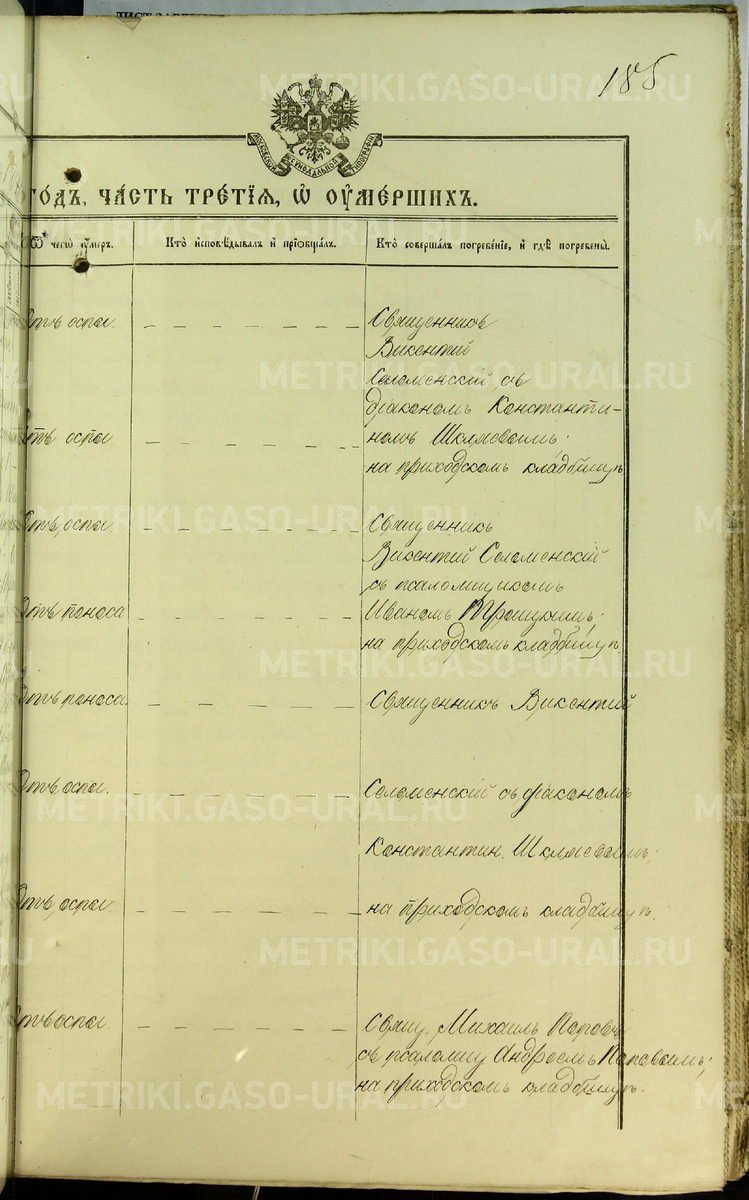 185
МОСКОВСКОЙ СѴНОДАЛЬНОЙ ТИПОГРАФІИ
ГО́ДЪ, ЧА́СТЬ ТРЕ́ТІЯ, Ѡ҆ ОУ҆МЕ́РШИХЪ.
Ѿ чегѡ̀ ᲂу҆́меръ. Кто̀ и҆сповѣ́дывалъ и҆ прїѻбща́лъ. Кто̀ соверша́лъ погребе́нїе, и҆ гдѣ̀ погребены̀.
Отъ оспы. Священникъ
Викентій
Соломенскій съ
діакономъ Константи-
Отъ оспы номъ Шкляевымъ;
на приходскомъ кладбищѣ
Отъ оспы Священникъ
Викентій Соломенскій
съ псаломщикомъ
Отъ поноса Иваномъ Трошкинымъ;
на приходскомъ кладбищѣ.
Отъ поноса Священникъ Викентій
Отъ оспы. Соломенскій съ діакономъ
Константин. Шкляевымъ;
Отъ оспы. на приходскомъ кладбищѣ.
Отъ оспы. Свящ. Михаилъ Поповъ
съ псаломщ Андреемъ Поповымъ;
на приходскомъ кладбищѣ.
METRIKI.GASO-URAL.RU